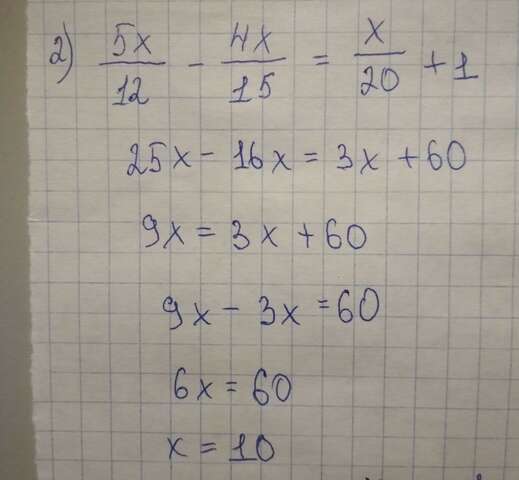 2) 5x/12 - 4x/15 = x/20 + 1
25x - 16x = 3x + 60
9x = 3x + 60
9x - 3x = 60
6x = 60
x = 10